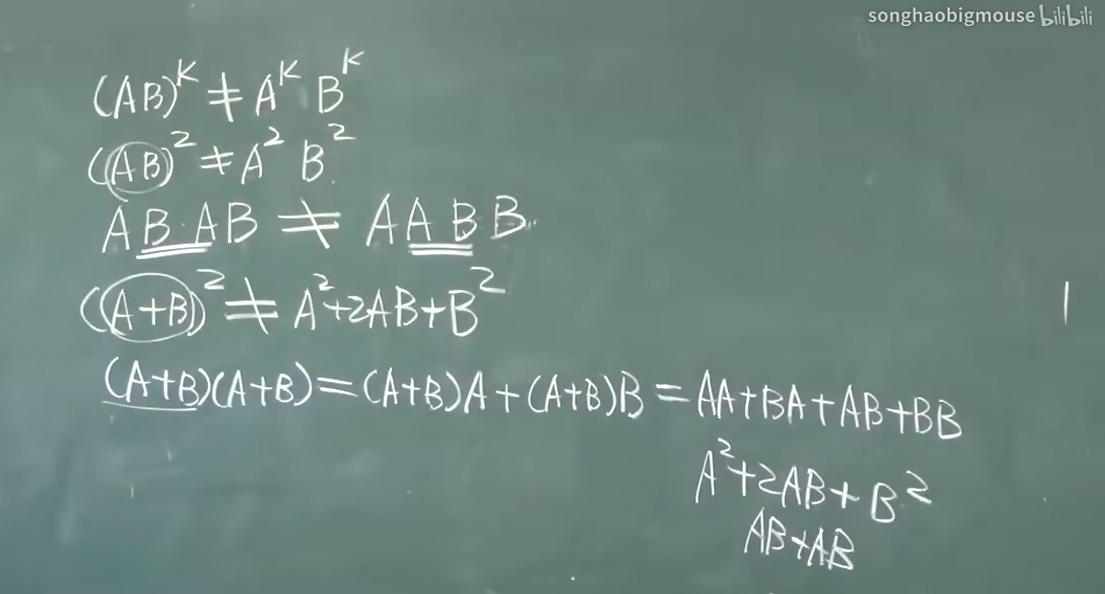 songhaobigmouse bilibili
(AB)^K ≠ A^K B^K
(AB)^2 ≠ A^2 B^2
AB·AB ≠ AABB
(A+B)^2 ≠ A^2+2AB+B^2
(A+B)(A+B)=(A+B)A+(A+B)B=AA+BA+AB+BB
A^2+2AB+B^2
AB+AB